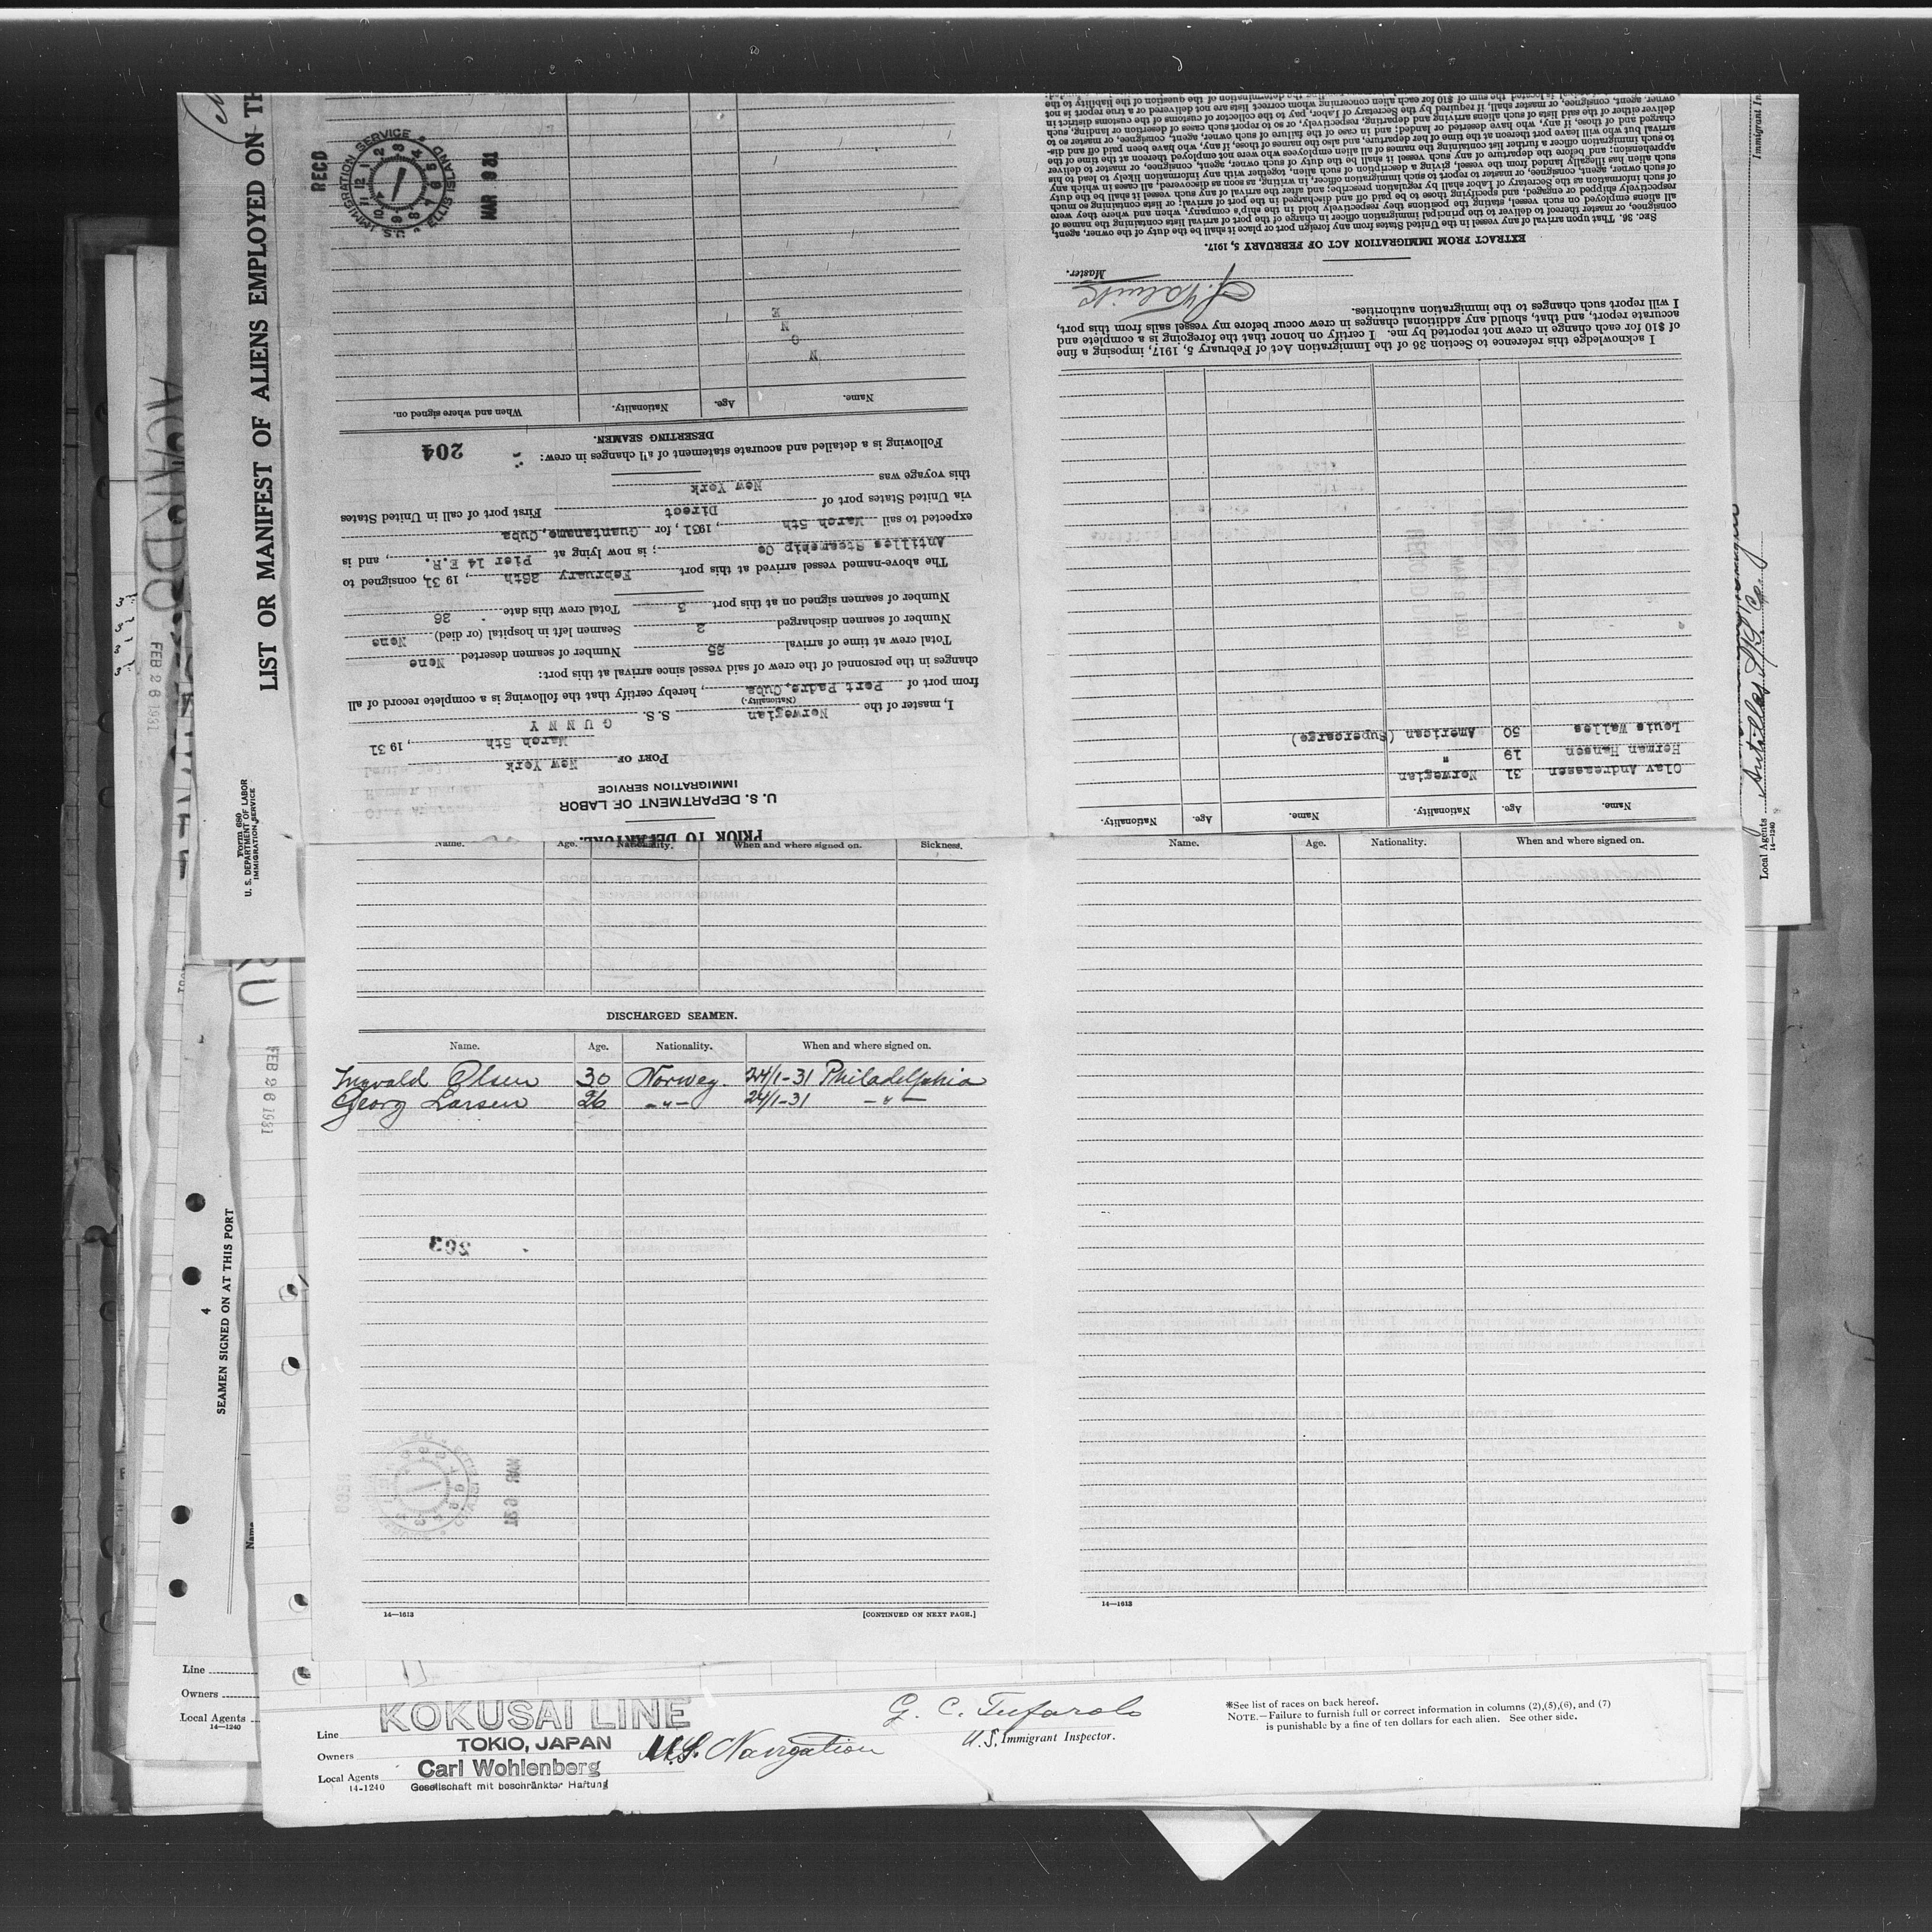 LIST OR MANIFEST OF ALIENS EMPLOYED ON TH
Form 680
U. S. DEPARTMENT OF LABOR
IMMIGRATION SERVICE
FEB 26 1931
PRIOR TO DEPARTURE.
U. S. DEPARTMENT OF LABOR
IMMIGRATION SERVICE
PORT OF New York
March 5th, 1931
I, master of the Norwegian S. S. GUNNY
(Nationality.)
from port of Port Padre, Cuba, hereby certify that the following is a complete record of all
changes in the personnel of the crew of said vessel since arrival at this port:
Total crew at time of arrival 25 Number of seamen deserted None
Number of seamen discharged 2 Seamen left in hospital (or died) None
Number of seamen signed on at this port 3 Total crew this date 26
The above-named vessel arrived at this port February 26th, 1931, consigned to
Antilles Steamship Co; is now lying at Pier 14 E.R., and is
expected to sail March 5th, 1931, for Guantaname, Cuba
via United States port of Direct First port of call in United States
this voyage was New York
Following is a detailed and accurate statement of all changes in crew: 204
DESERTING SEAMEN.
Name. Age. Nationality. When and where signed on.
N
O
N
E
RECD
U.S. IMMIGRATION SERVICE
ELLIS ISLAND
MAR 9 31
Name. Age. Nationality. Name. Age. Nationality.
Olav Andreassen 31 Norwegian
Herman Hansen 19 "
Louis Walles 50 American (Supercargo)
I acknowledge this reference to Section 36 of the Immigration Act of February 5, 1917, imposing a fine
of $10 for each change in crew not reported by me. I certify on honor that the foregoing is a complete and
accurate report, and that, should any additional changes in crew occur before my vessel sails from this port,
I will report such changes to the immigration authorities.
Master.
EXTRACT FROM IMMIGRATION ACT OF FEBRUARY 5, 1917.
SEC. 36. That upon arrival of any vessel in the United States from any foreign port or place it shall be the duty of the owner, agent,
consignee, or master thereof to deliver to the principal immigration officer in charge of the port of arrival lists containing the names of
all aliens employed on such vessel, stating the positions they respectively hold in the ship's company, when and where they were
respectively shipped or engaged, and specifying those to be paid off and discharged in the port of arrival; or lists containing so much
of such information as the Secretary of Labor shall by regulation prescribe; and after the arrival of any such vessel it shall be the duty
of such owner, agent, consignee, or master to report to such immigration officer, in writing, as soon as discovered, all cases in which any
such alien has illegally landed from the vessel, giving a description of such alien, together with any information likely to lead to his
apprehension; and before the departure of any such vessel it shall be the duty of such owner, agent, consignee, or master to deliver
to such immigration officer a further list containing the names of all alien employees who were not employed thereon at the time of the
arrival but who will leave port thereon at the time of her departure, and also the names of those, if any, who have been paid off and dis-
charged and of those, if any, who have deserted or landed; and in case of the failure of such owner, agent, consignee, or master so to
deliver either of the said lists of such aliens arriving and departing, respectively, or so to report such cases of desertion or landing, such
owner, agent, consignee, or master shall, if required by the Secretary of Labor, pay to the collector of customs of the customs district in
Immigrant In
Local Agents
14—1240
Name. Age. Nationality. When and where signed on. Sickness.
DISCHARGED SEAMEN.
Name. Age. Nationality. When and where signed on.
Ingvald Olsen 30 Norweg. 24/1-31 Philadelphia
Georg Larsen 26 -"- 24/1-31 -"-
203
14—1613
[CONTINUED ON NEXT PAGE.]
Name. Age. Nationality. When and where signed on.
14—1613
FEB 26 1931
4
SEAMEN SIGNED ON AT THIS PORT
Name
Line
Owners
Local Agents
14—1240
Line KOKUSAI LINE
TOKIO, JAPAN
Owners
Local Agents Carl Wohlenberg
14-1240 Gesellschaft mit beschränkter Haftung
U.S. Navigation
G. C. Tufarolo
U.S. Immigrant Inspector.
*See list of races on back hereof.
NOTE.—Failure to furnish full or correct information in columns (2),(5),(6), and (7)
is punishable by a fine of ten dollars for each alien. See other side.